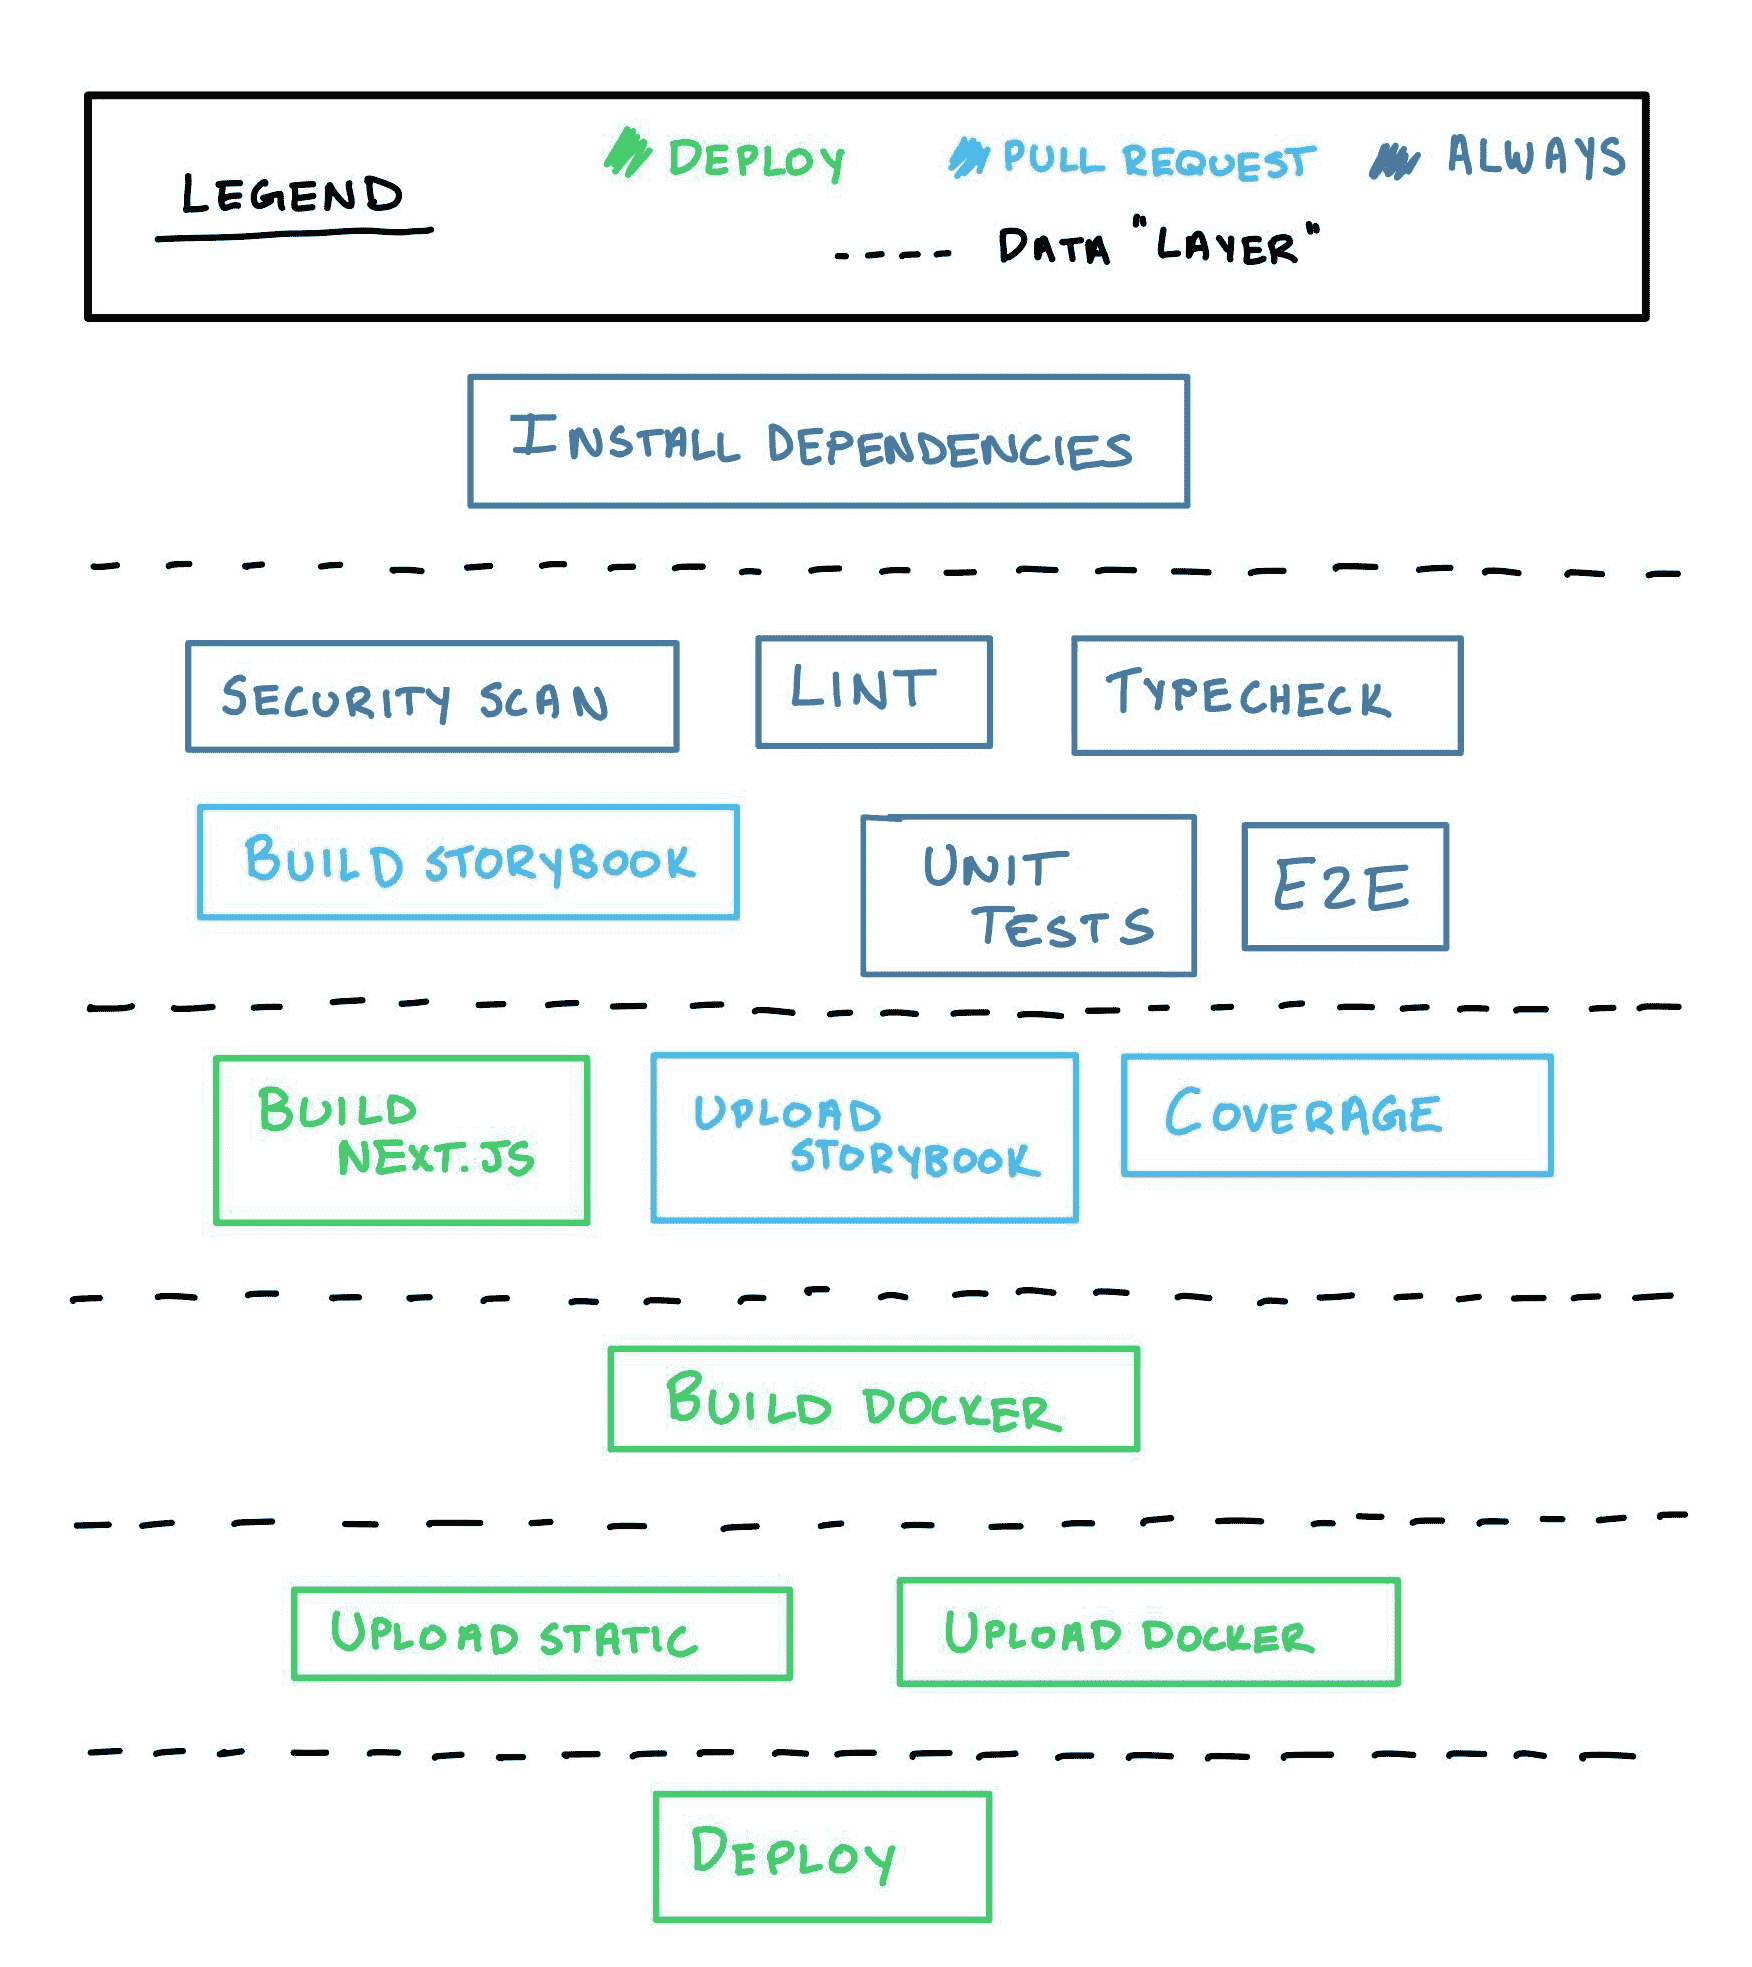 LEGEND
DEPLOY
PULL REQUEST
ALWAYS
DATA "LAYER"
INSTALL DEPENDENCIES
SECURITY SCAN
LINT
TYPECHECK
BUILD STORYBOOK
UNIT
TESTS
E2E
BUILD
NEXT.JS
UPLOAD
STORYBOOK
COVERAGE
BUILD DOCKER
UPLOAD STATIC
UPLOAD DOCKER
DEPLOY